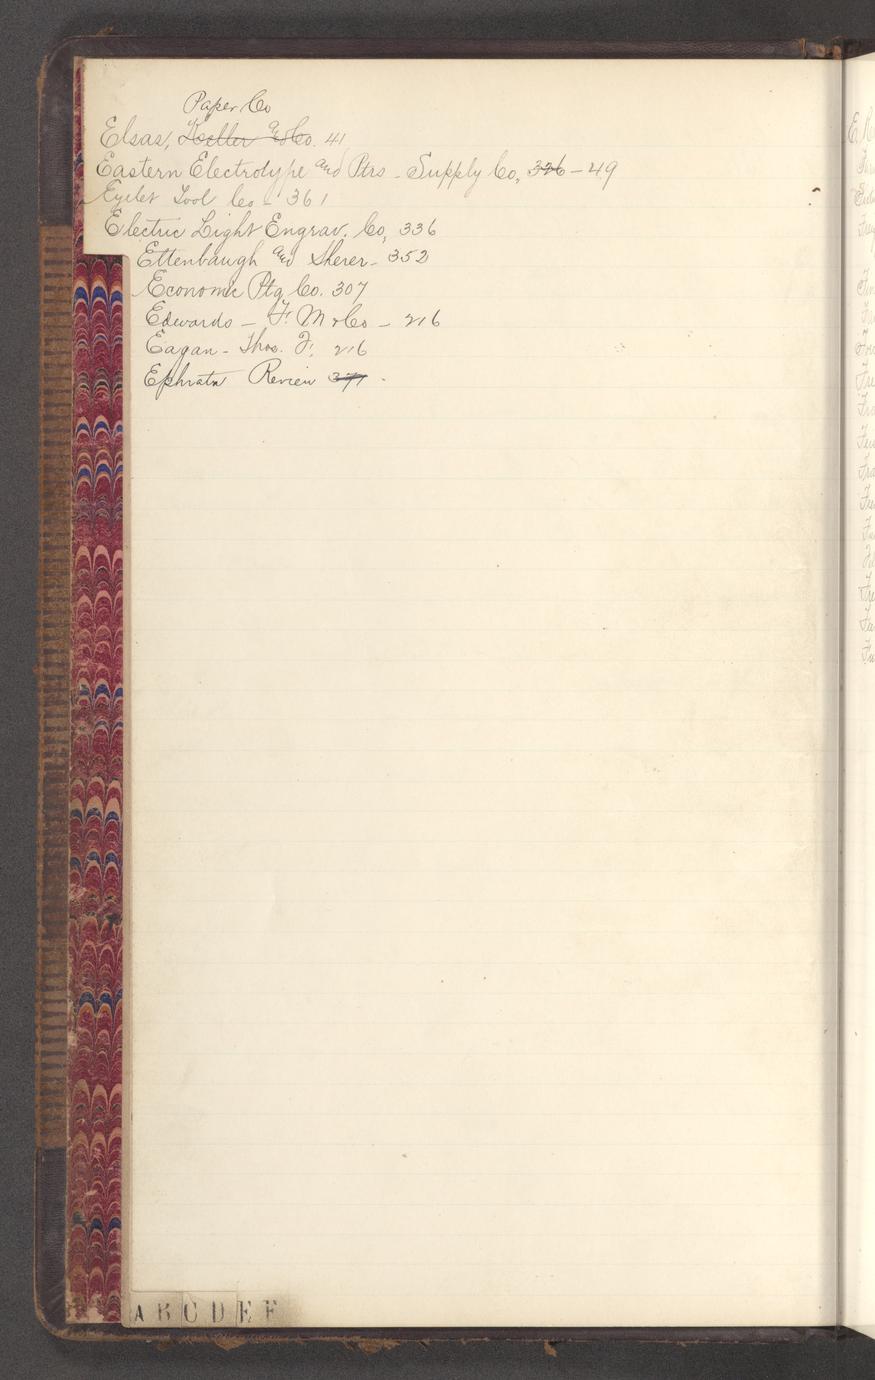 Paper Co
Elsas, Koeller and Co. 41
Eastern Electrotype and Ptrs - Supply Co, 326 - 49
Eyelet Tool Co - 361
Electric Light Engrav. Co, 336
Ettenbaugh and Sherer - 352
Economic Ptg Co. 307
Edwards - F. M & Co - 216
Eagan - Thos. F. 216
Ephrata Review 371 -
A B C D E F